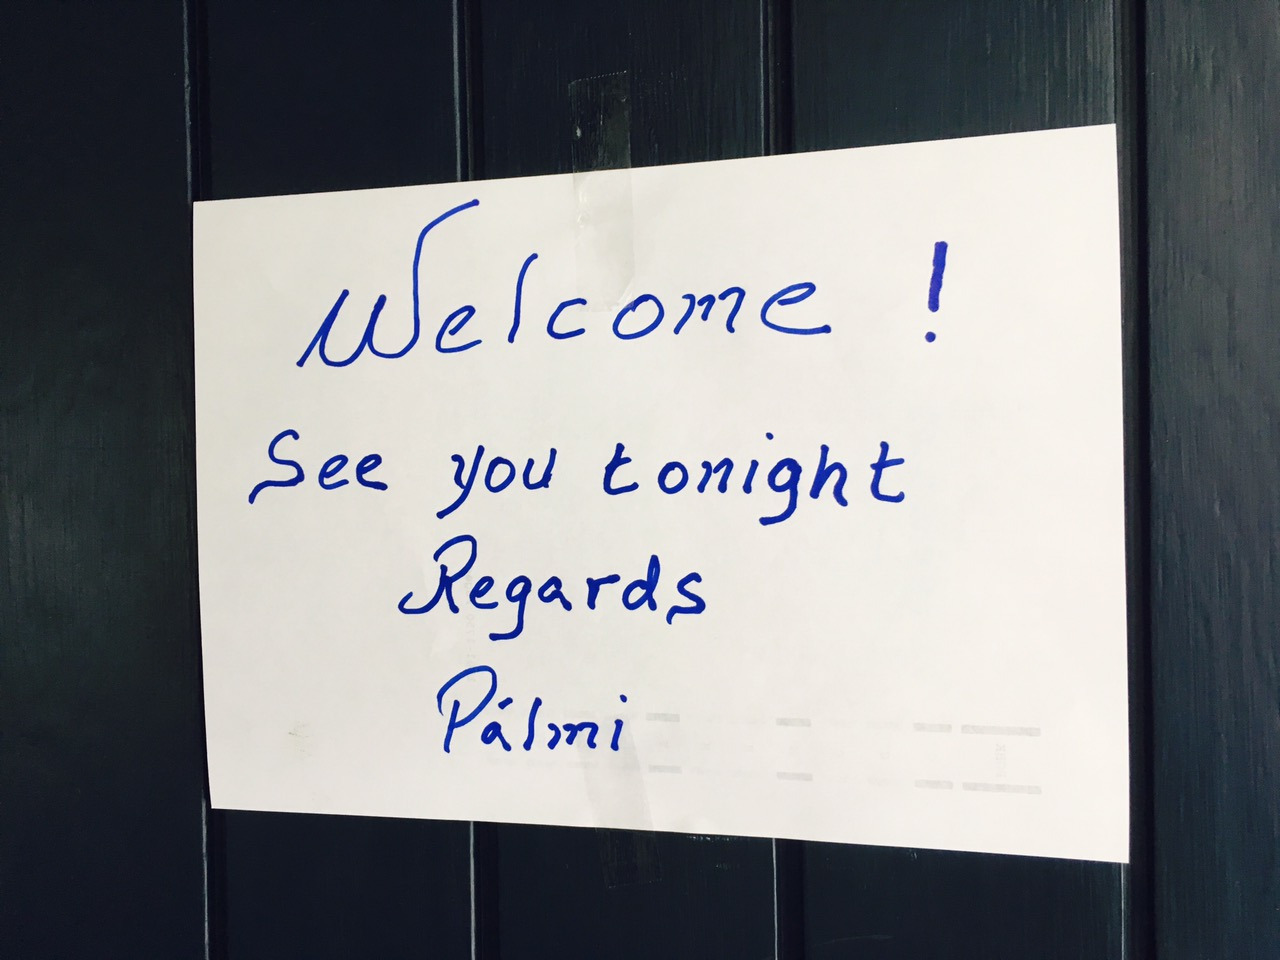 Welcome !
See you tonight
Regards
Pálmi